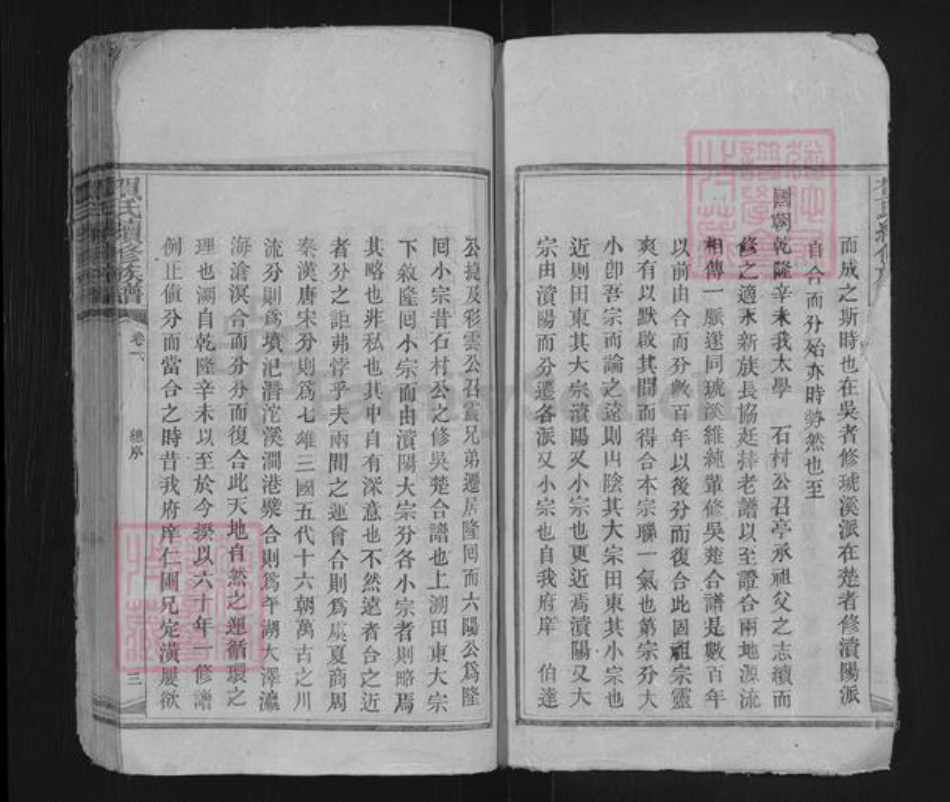 而成之斯時也在吳者修琥溪派在楚者修濆陽派
自合而分殆亦時勢然也至
國朝乾隆辛未我太學 石村公召亭承祖父之志續而
修之適永新族長協廷捧老譜以至證合兩地源流
相傳一脈遂同琥溪維純輩修吳楚合譜是數百年
以前由合而分數百年以後分而復合此固祖宗靈
爽有以默啟其間而得合本宗聯一氣也第宗分大
小卽吾宗而論之遠則山陰其大宗田東其小宗也
近則田東其大宗濆陽又小宗也更近焉濆陽又大
宗由濆陽而分遷各派又小宗也自我府庠 伯達
公援及彩雲公召震兄弟遷居隆回而六陽公爲隆
回小宗昔石村公之修吳楚合譜也上溯田東大宗
下敘隆回小宗而由濆陽大宗分各小宗者則略焉
其略也非私也其中自有深意也不然遠者合之近
者分之詎弗悖乎夫兩間之運會合則爲虞夏商周
秦漢唐宋分則爲七雄三國五代十六朝萬古之川
流分則爲墳汜潛沱溪澗港檗合則爲平湖大澤瀛
海滄溟合而分分而復合此天地自然之運循環之
理也溯自乾隆辛未以至於今揆以六十年一修譜
例正値分而當合之時昔我府庠仁圃兄定潢屢欲
賀氏續修族譜
卷一
總序
三